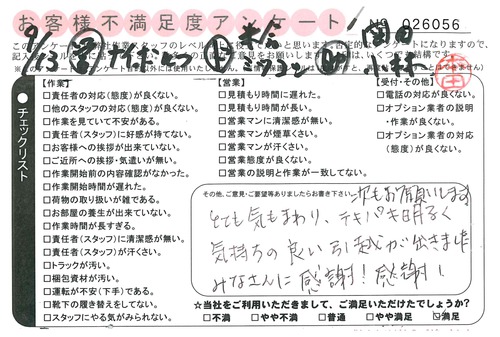 お客様不満足度アンケート
№ 026056
【作業】
□責任者の対応(態度)が良くない。
□他のスタッフの対応(態度)が良くない。
□作業を見ていて不安がある。
□責任者(スタッフ)に好感が持てない。
□お客様への挨拶が出来ていない。
□ご近所への挨拶・気遣いが無い。
□作業開始前の内容確認がなかった。
□作業開始時間が遅れた。
□荷物の取り扱いが雑である。
□お部屋の養生が出来ていない。
□作業時間が長すぎる。
□責任者(スタッフ)に清潔感が無い。
□責任者(スタッフ)が汗くさい。
□トラックが汚い。
□梱包資材が汚い。
□運転が不安(下手)である。
□靴下の履き替えをしてない。
□スタッフにやる気がみられない。
【営業】
□見積もり時間に遅れた。
□見積もり時間が長い。
□営業マンに清潔感が無い。
□営業マンが煙草くさい。
□営業マンが汗くさい。
□営業態度が良くない。
□営業の説明と作業が一致してない。
【受付・その他】
□電話の対応が良くない。
□オプション業者の説明
・作業が良くない。
□オプション業者の対応
(態度)が良くない。
チェックリスト
その他、ご意見・ご要望等ありましたらお書き下さい。
次もお願いします
とても気もまわり、テキパキ明るく
気持ちの良い引越が出来ました
みなさんに感謝!感謝!
☆当社をご利用いただきまして、ご満足いただけたでしょうか?
□不満 □やや不満 □普通 □やや満足 ☑満足